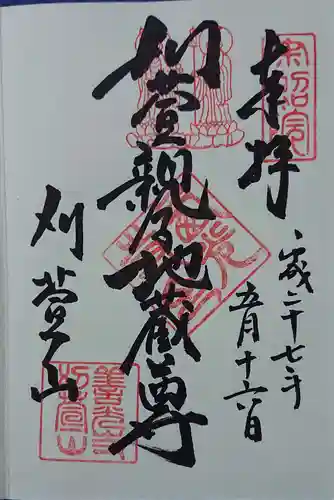 奉拝
平成二十七年
五月十六日
刈萱親子地蔵尊
刈萱山